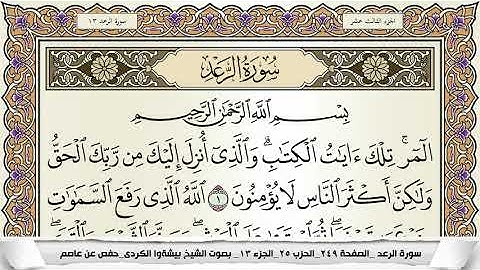 الجزء الثالث عشر
سورة الرعد ١٣
سُورَةُ الرَّعْدِ
بِسْمِ ٱللَّهِ ٱلرَّحْمَٰنِ ٱلرَّحِيمِ
الٓمٓرۚ تِلْكَ ءَايَٰتُ ٱلْكِتَٰبِۗ وَٱلَّذِىٓ أُنزِلَ إِلَيْكَ مِن رَّبِّكَ ٱلْحَقُّ
وَلَٰكِنَّ أَكْثَرَ ٱلنَّاسِ لَا يُؤْمِنُونَ ١ ٱللَّهُ ٱلَّذِى رَفَعَ ٱلسَّمَٰوَٰتِ
سورة الرعد _الصفحة ٢٤٩_ الحزب ٢٥_ الجزء ١٣ _ بصوت الشيخ بيشةوا الكردى_حفص عن عاصم